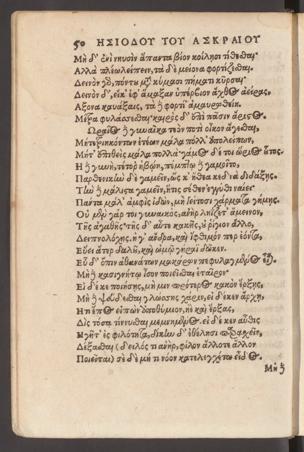 50 ΗΣΙΟΔΟΥ ΤΟΥ ΑΣΚΡΑΙΟΥ
Μὴ δ' ἐνὶ νηυσὶν ἅπαντα βίον κοίλησι τίθεσθαι·
Ἀλλὰ πλέω λείπειν, τὰ δὲ μείονα φορτίζεσθαι.
Δεινὸν γὰρ πόντου μετὰ κύμασι πήματι κύρσαι·
Δεινὸν δ', εἴκ' ἐφ' ἅμαξαν ὑπέρβιον ἄχθος ἀείρας,
Ἄξονα καυάξαις, τὰ δὲ φορτί' ἀμαυρωθείη.
Μέτρα φυλάσσεσθαι· καιρὸς δ' ἐπὶ πᾶσιν ἄριστος.
Ὡραῖος δὲ γυναῖκα τεὸν ποτὶ οἶκον ἄγεσθαι,
Μήτε τριηκόντων ἐτέων μάλα πόλλ' ἀπολείπων,
Μήτ' ἐπιθεὶς μάλα πολλά· γάμος δέ τοι ὥριος οὗτος.
Ἡ δὲ γυνὴ τέτορ' ἡβώῃ, πέμπτῳ δὲ γαμοῖτο.
Παρθενικὴν δὲ γαμεῖν, ὥς κ' ἤθεα κεδνὰ διδάξῃς.
Τὴν δὲ μάλιστα γαμεῖν, ἥτις σέθεν ἐγγύθι ναίει·
Πάντα μάλ' ἀμφὶς ἰδών, μὴ γείτοσι χάρματα γήμῃς.
Οὐ μὲν γάρ τοι γυναικὸς ἀνὴρ ληΐζετ' ἄμεινον,
Τῆς ἀγαθῆς· τῆς δ' αὖτε κακῆς, οὐ ῥίγιον ἄλλο,
Δειπνολόχης. ἥτ' ἄνδρα, καὶ ἴφθιμόν περ ἐόντα,
Εὕει ἄτερ δαλοῦ, καὶ ὠμῷ γήραϊ δῶκεν.
Εὖ δ' ὄπιν ἀθανάτων μακάρων πεφυλαγμένος εἶναι.
Μὴ δὲ κασιγνήτῳ ἶσον ποιεῖσθαι ἑταῖρον·
Εἰ δέ κε ποιήσῃς, μή μιν πρότερος κακὸν ἔρξῃς,
Μὴ δὲ ψεύδεσθαι γλώσσης χάριν, εἰ δέ κεν ἄρχῃ,
Ἤ τι ἔπος εἰπὼν ἀποθύμιον, ἠὲ καὶ ἔρξας,
Δὶς τόσα τίννυσθαι μεμνημένος. εἰ δέ κεν αὖθις
Ἡγῆτ' ἐς φιλότητα, δίκην δ' ἐθέλησι παρασχεῖν,
Δέξασθαι (δειλός τοι ἀνήρ, φίλον ἄλλοτε ἄλλον
Ποιεῖται) σὲ δὲ μή τι νόον κατελεγχέτω εἶδος.
Μὴ δὲ